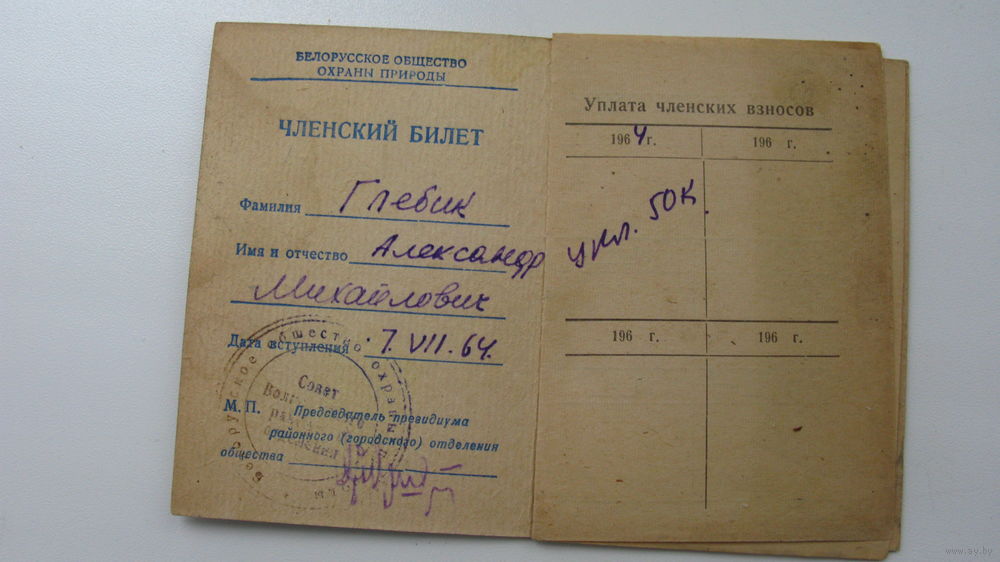 БЕЛОРУССКОЕ ОБЩЕСТВО
ОХРАНЫ ПРИРОДЫ
ЧЛЕНСКИЙ БИЛЕТ
Фамилия Глебик
Имя и отчество Александр
Михайлович
Дата вступления 7.VII.64.
М. П. Председатель президиума
районного (городского) отделения
общества
Белорусское общество охраны
Совет
отделения
Уплата членских взносов
1964 г. 196 г.
упл. 50к.
196 г. 196 г.
www.ay.by